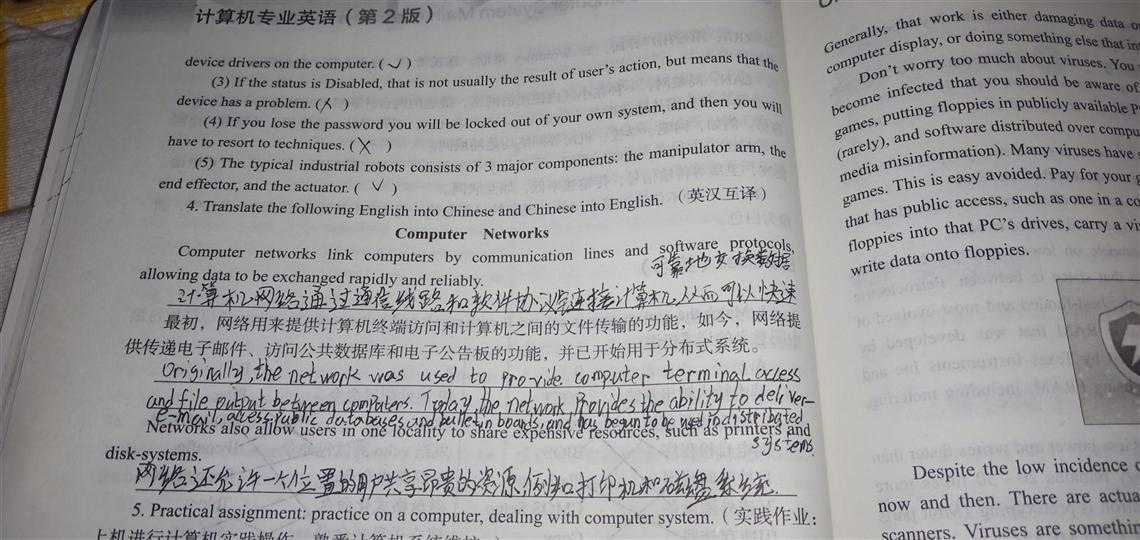 计算机专业英语（第2版）
device drivers on the computer. ( √ )
(3) If the status is Disabled, that is not usually the result of user's action, but means that the
device has a problem. (  )
(4) If you lose the password you will be locked out of your own system, and then you will
have to resort to techniques. ( X )
(5) The typical industrial robots consists of 3 major components: the manipulator arm, the
end effector, and the actuator. ( √ )
4. Translate the following English into Chinese and Chinese into English. （英汉互译）
Computer Networks
Computer networks link computers by communication lines and software protocols,
可靠地交换数据
allowing data to be exchanged rapidly and reliably.
计算机网络通过通信线路和软件协议连接计算机,从而可以快速
最初，网络用来提供计算机终端访问和计算机之间的文件传输的功能，如今，网络提
供传递电子邮件、访问公共数据库和电子公告板的功能，并已开始用于分布式系统。
Originally, the network was used to provide computer terminal access
and file output between computers. Today, the network provides the ability to deliver
e-mail, access public databases and bulletin boards, and has begun to be used in distributed
systems.
Networks also allow users in one locality to share expensive resources, such as printers and
disk-systems.
网络还允许一个位置的用户共享昂贵的资源,例如打印机和磁盘系统.
5. Practical assignment: practice on a computer, dealing with computer system.（实践作业：
上机进行计算机实践操作
Generally, that work is either damaging data
computer display, or doing something else that
Don't worry too much about viruses. You
become infected that you should be aware of.
games, putting floppies in publicly available
(rarely), and software distributed over
media misinformation). Many viruses have
games. This is easy avoided. Pay for your
that has public access, such as one in a
floppies into that PC's drives, carry a
write data onto floppies.
Despite the low incidence
now and then. There are
scanners. Viruses are